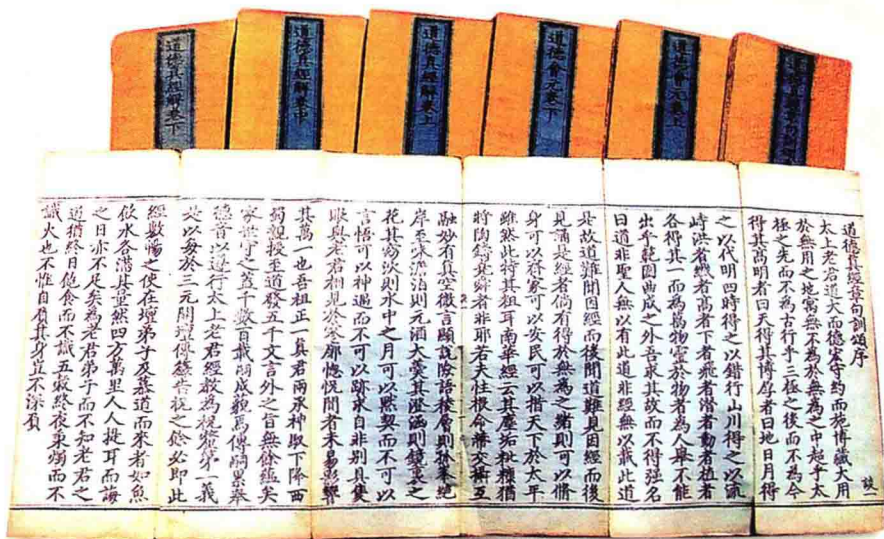 道德真經解卷下
道德真經解卷中
道德真經解卷上
道德會元卷下
道德會元卷上
道德真經章句訓頌序
太上老君道大而德宏守約而施博藏大用
於無用之地寓無不為於無為之中超乎太
極之先而不為古行乎三極之後而不為今
得其高明者曰天得其博厚者曰地日月得
之以代明四時得之以錯行山川得之以流
峙洪者纖者高者下者飛者潛者動者植者
各得其一而為萬物靈於物者為人舉不能
出乎範圍曲成之外吾求其故而不得強名
曰道非聖人無以有此道非經無以載此道
是故道難聞因經而後聞道難見因經而後
見誦是經者倘有得於無為之緒則可以脩
身可以齊家可以安民可以措天下於太平
雖然此特其粗耳南華經云其塵垢秕糠猶
將陶鑄堯舜者非耶若夫性根命蒂交攝互
融妙有真空微言顯說險語層則峯絕
岸至味淡泊則元酒大羹其澄涵則鏡裏之
花其則水中之月可以默契而不可以
言悟可以神遇而不可以跡求自非別具隻
眼與老君相見於寥廓惚恍間者未易影響
其萬一也吾祖正一真君兩承神馭下降西
蜀親授至道發五千文言外之旨無餘緼矣
家世守之蓋千數百載成傳嗣累奉
德音以遵行太上老君經教為第一義
是以每於三元開壇傳籙告祝之餘必即此
經敷暢之使在壇弟子及慕道而來者如魚
飲水各滿其量然四方萬里人人提耳而誨
之日亦不足矣為老君弟子而不知老君之
道猶終日飽食而不識五穀終夜秉燭而不
識火也不惟自負其身豈不深負